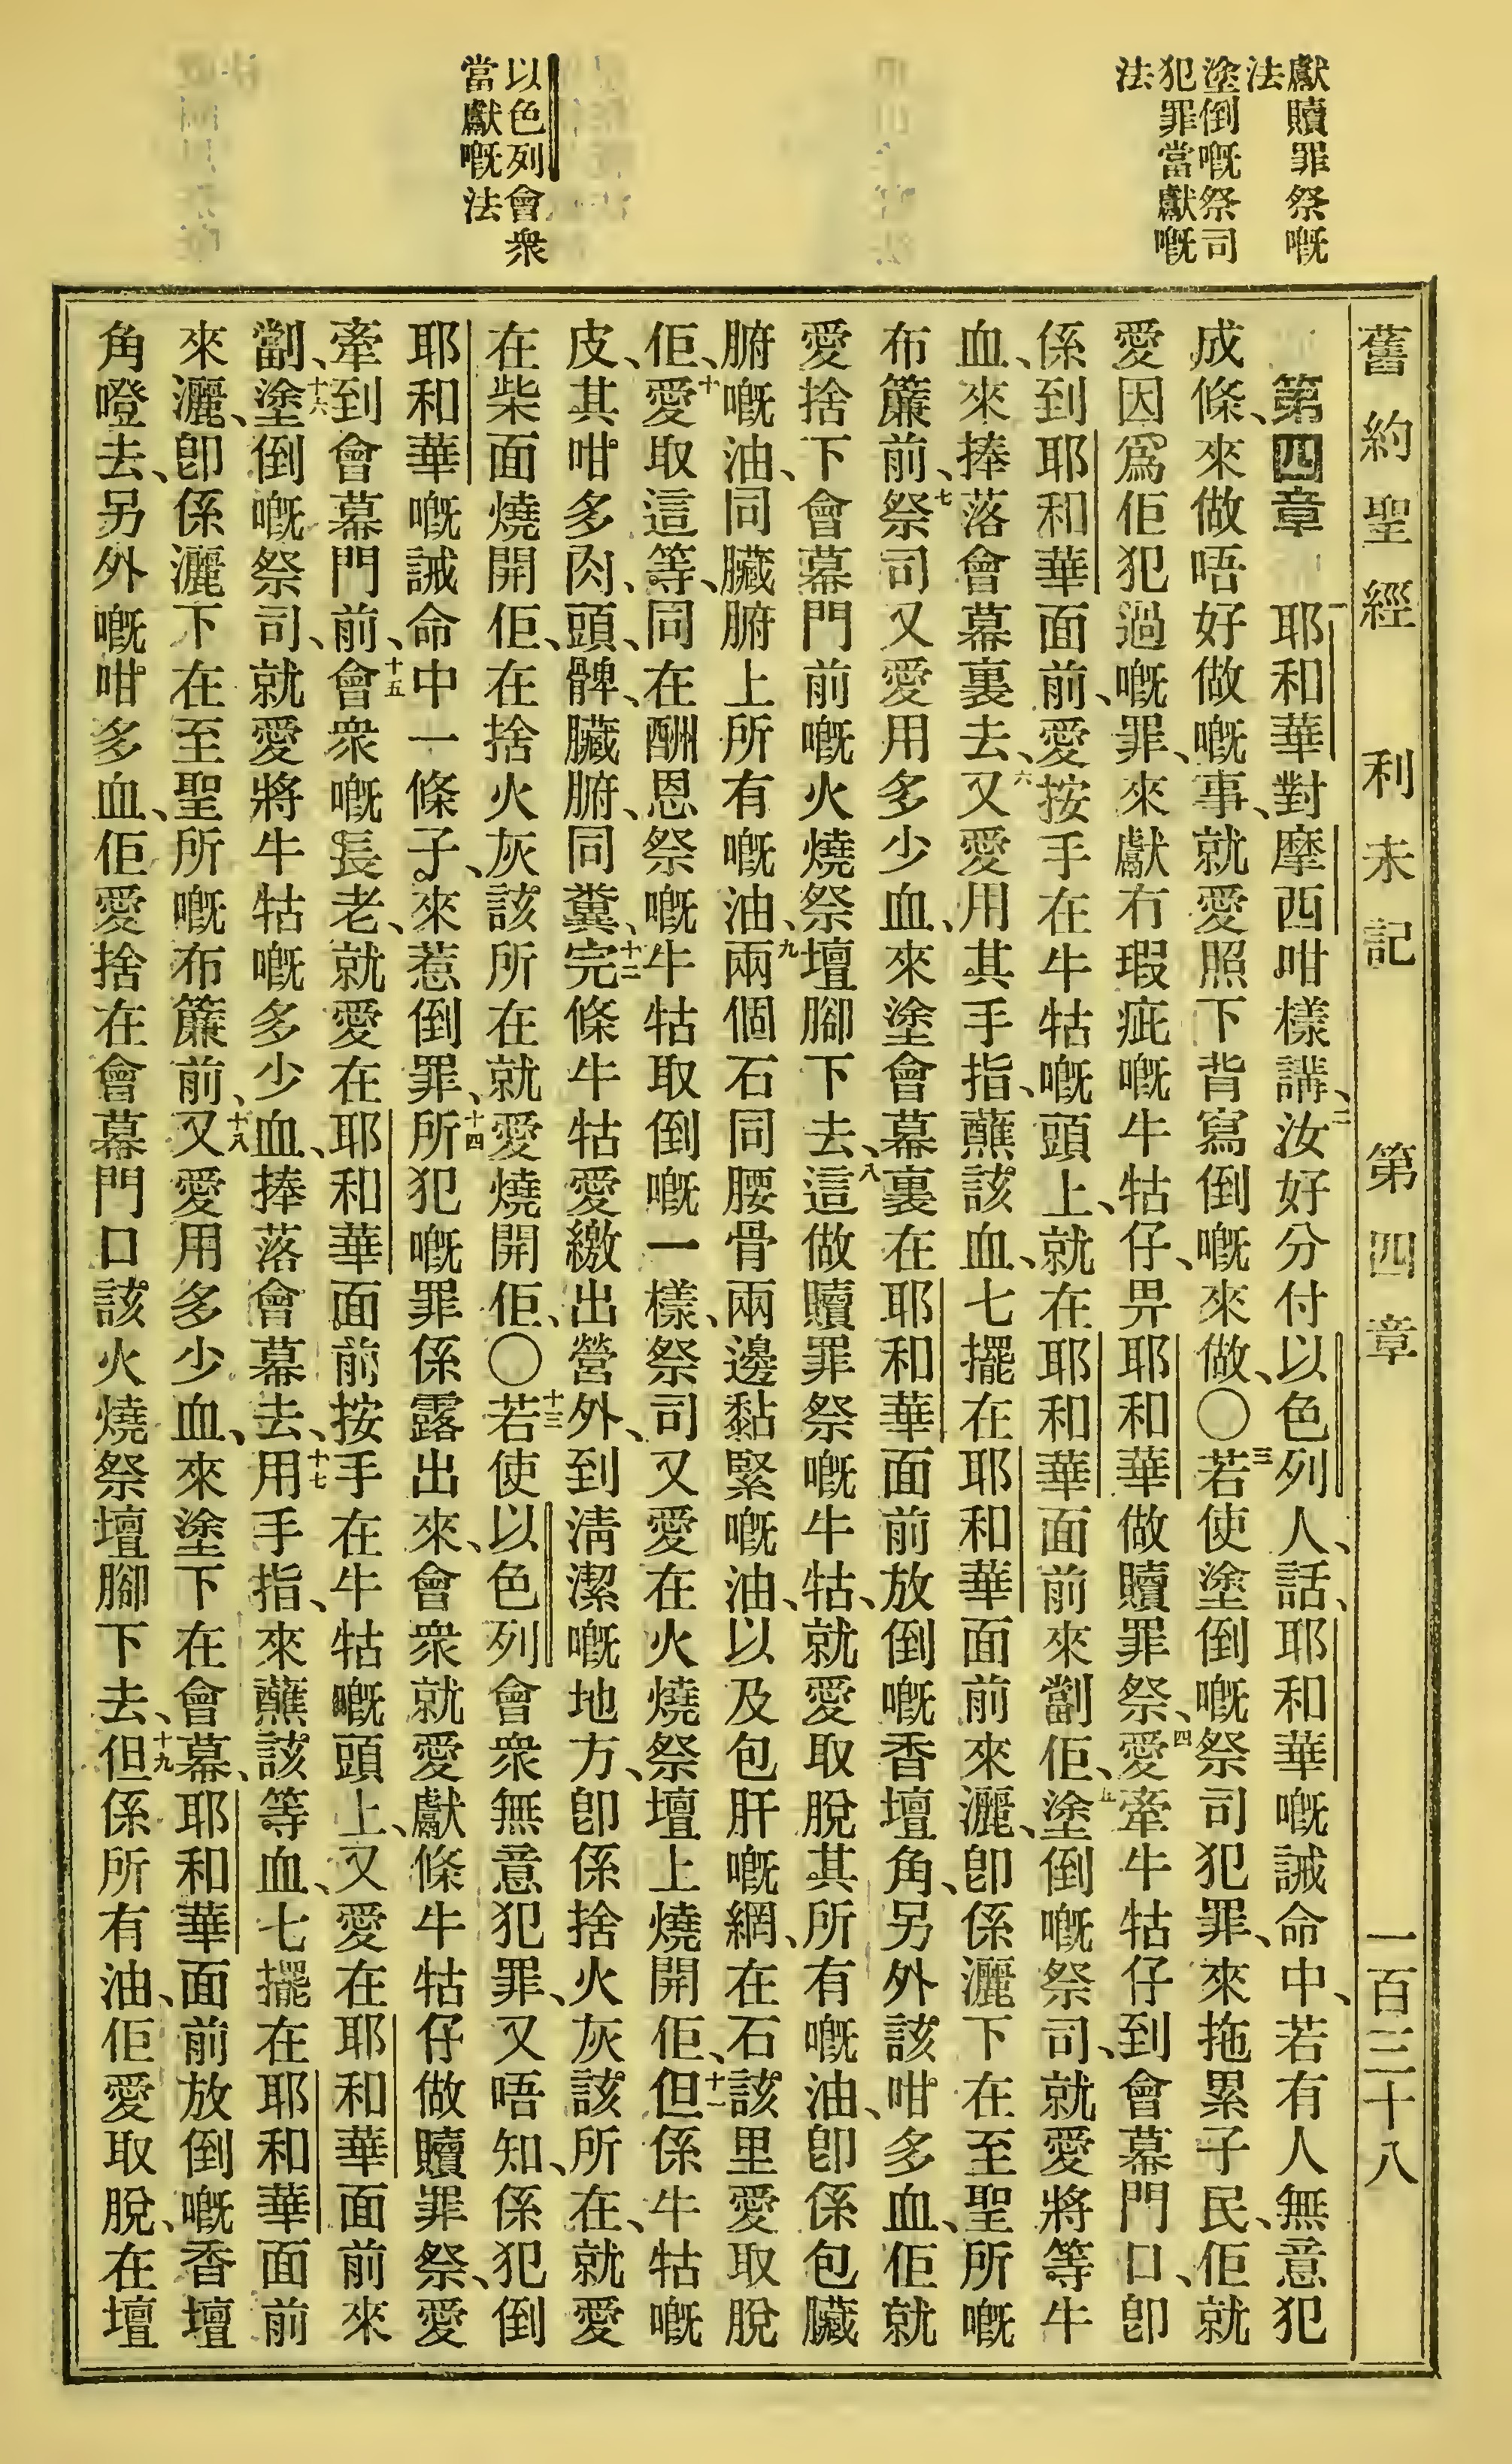 獻贖罪祭嘅
法
塗倒嘅祭司
犯罪當獻嘅
法
以色列會衆
當獻嘅法
舊約聖經 利未記 第四章 一百三十八
第四章 一耶和華對摩西咁樣講、二汝好分付以色列人、話、耶和華嘅誡命中、若有人無意犯
成條、來做唔好做嘅事、就愛照下背寫倒嘅來做、〇三若使塗倒嘅祭司犯罪、來拖累子民、佢就
愛因爲佢犯過嘅罪、來獻冇瑕疵嘅牛牯仔、畀耶和華做贖罪祭、四愛牽牛牯仔到會幕門口、卽
係到耶和華面前、愛按手在牛牯嘅頭上、就在耶和華面前來劏佢、五塗倒嘅祭司、就愛將等牛
血、來捧落會幕裏去、六又愛用其手指、蘸該血、七擺在耶和華面前來灑、卽係灑下在至聖所嘅
布簾前、七祭司又愛用多少血、來塗會幕裏在耶和華面前放倒嘅香壇角、另外該咁多血、佢就
愛捨下會幕門前嘅火燒祭壇腳下去、八這做贖罪祭嘅牛牯、就愛取脫其所有嘅油、卽係包臟
腑嘅油、同臟腑上所有嘅油、九兩個石同腰骨兩邊黏緊嘅油、以及包肝嘅網、在石該里愛取脫
佢、十愛取這等、同在酬恩祭嘅牛牯取倒嘅一樣、祭司又愛在火燒祭壇上燒開佢、十一但係牛牯嘅
皮、其咁多肉、頭、髀、臟腑、同糞、十二完條牛牯愛繳出營外、到淸潔嘅地方、卽係捨火灰該所在、就愛
在柴面燒開佢、在捨火灰該所在就愛燒開佢、〇十三若使以色列會衆無意犯罪、又唔知、係犯倒
耶和華嘅誡命中一條子、來惹倒罪、十四所犯嘅罪係露出來、會衆就愛獻條牛牯仔做贖罪祭、愛
牽到會幕門前、十五會衆嘅長老、就愛在耶和華面前按手在牛牯嘅頭上、又愛在耶和華面前來
劏、十六塗倒嘅祭司、就愛將牛牯嘅多少血、捧落會幕去、十七用手指、來蘸該等血、七擺在耶和華面前
來灑、卽係灑下在至聖所嘅布簾前、十八又愛用多少血、來塗下在會幕、耶和華面前放倒嘅香壇
角噔去、另外嘅咁多血、佢愛捨在會幕門口該火燒祭壇腳下去、十九但係所有油、佢愛取脫、在壇